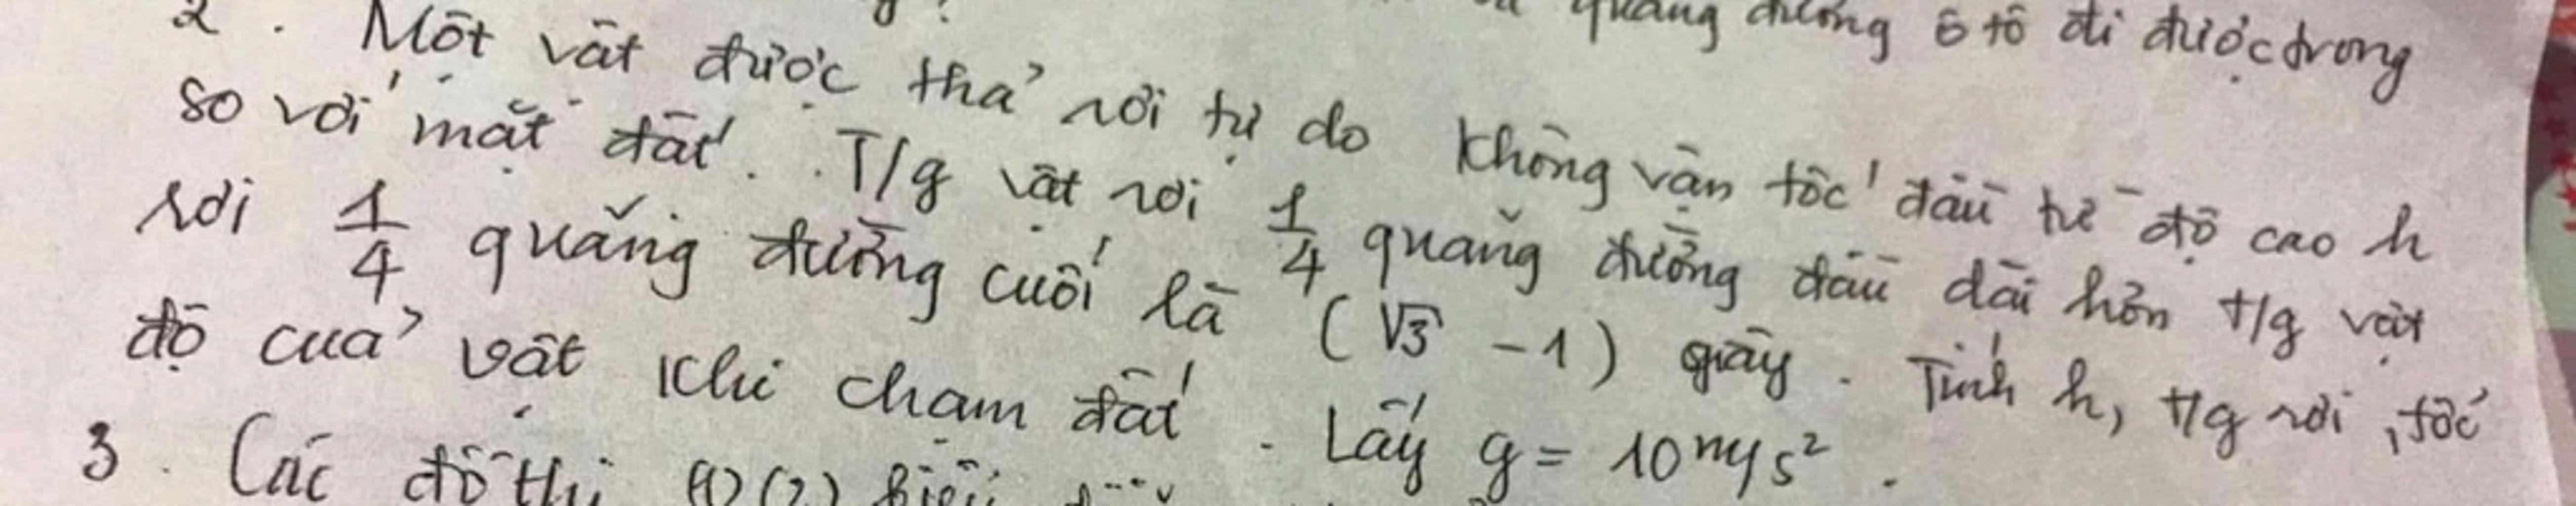 quãng đường ô tô đi được trong
2. Một vật được thả rơi tự do không vận tốc đầu từ độ cao h
so với mặt đất. T/g vật rơi 1/4 quãng đường đầu dài hơn t/g vật
rơi 1/4 quãng đường cuối là (√3 - 1) giây. Tính h, t/g rơi, tốc
độ của vật khi chạm đất. Lấy g = 10 m/s².
3. Các đồ thị (1) (2) biểu